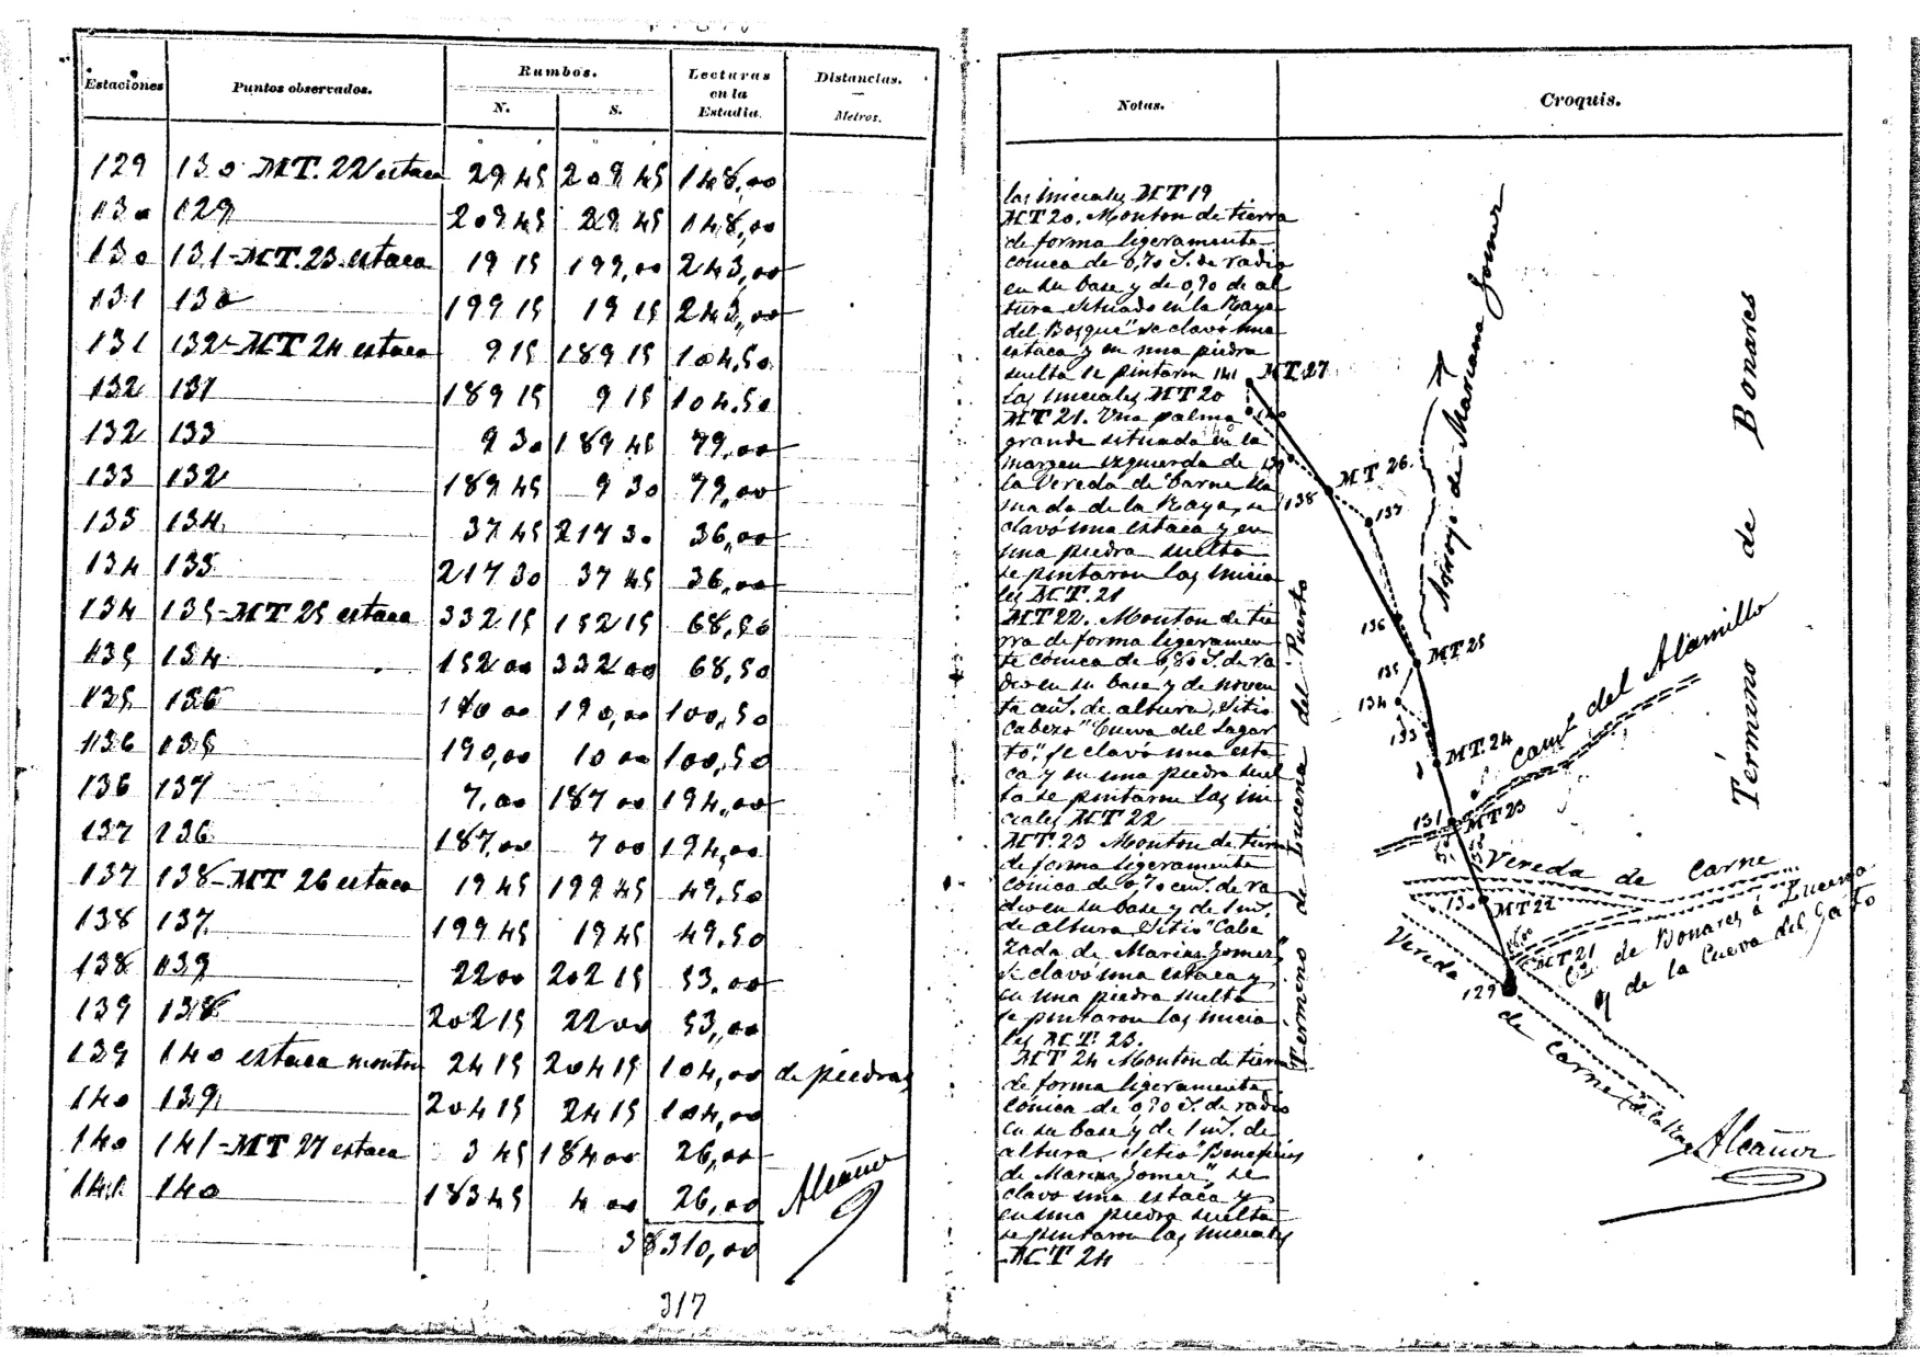 Estaciones Puntos observados. Rumbos. Lecturas en la Estadia. Distancias.
N. S. Metros.
129 130 MT. 22 estaca 29 45 209 45 148,00
130 129 209 45 29 45 148,00
130 131-MT. 23 estaca 19 15 199,00 243,00
131 130 199 15 19 15 243,00
131 132-MT 24 estaca 9 15 189 15 104,50
132 131 189 15 9 15 104,50
132 133 9 30 189 45 79,00
133 132 189 45 9 30 79,00
133 134 37 45 217 30 36,00
134 133 217 30 37 45 36,00
134 135-MT 25 estaca 332 15 152 15 68,50
135 134 152 00 332 00 68,50
135 136 10 00 190,00 100,50
136 135 190,00 10 00 100,50
136 137 7,00 187 00 194,00
137 136 187,00 7 00 194,00
137 138-MT 26 estaca 19 45 199 45 49,50
138 137 199 45 19 45 49,50
138 139 22 00 202 15 53,00
139 138 202 15 22 00 53,00
139 140 estaca monton 24 15 204 15 104,00 de piedras
140 139 204 15 24 15 104,00
140 141-MT 27 estaca 3 45 184 00 26,00
141 140 183 45 4 00 26,00
38310,00
Alcañiz
317
Notas.
las iniciales MT 19
MT 20. Monton de tierra
de forma ligeramente
cónica de 0,70 de radio
en su base y de 0,70 de al
tura situado en la Raya
del Bosque" se clavó una
estaca y en una piedra
suelta se pintaron
las iniciales MT 20
MT 21. Una palma
grande situada en la
margen izquierda de
la Vereda de Carne lla
mada de la Raya, se
clavó una estaca y en
una piedra suelta
se pintaron las inicia
les MT. 21
MT 22. Monton de tie
rra de forma ligeramen
te cónica de 0,80 de ra
dio en su base y de noven
ta cent. de altura, Sitio
Cabezo "Cueva del Lagar
to", se clavó una esta
ca y en una piedra suel
ta se pintaron las ini
ciales MT 22
MT. 23 Monton de tierra
de forma ligeramente
cónica de 0,70 cent. de ra
dio en su base y de 1 mt.
de altura, Sitio "Cabe
zada de Mariana Gomez",
se clavó una estaca y
en una piedra suelta
se pintaron las inicia
les MT. 23.
MT 24 Monton de tierra
de forma ligeramente
cónica de 0,70 de radio
en su base y de 1 mt. de
altura. Sitio
de Mariana Gomez", se
clavó una estaca y
en una piedra suelta
se pintaron las iniciales
MT 24
Croquis.
Arroyo de Mariana Gomez
Término de Bonares
Término de Lucena del Puerto
141 MT. 27
140
139
138 MT 26.
137
136
135 MT 25
134
133
MT. 24
Cam.º del Alamillo
131 MT 23
Vereda de Carne
130 MT 22
MT 21
129
C.º de Bonares á Lucena
y de la Cueva del Gato
Vereda de Carne (de la Raya
Alcañiz